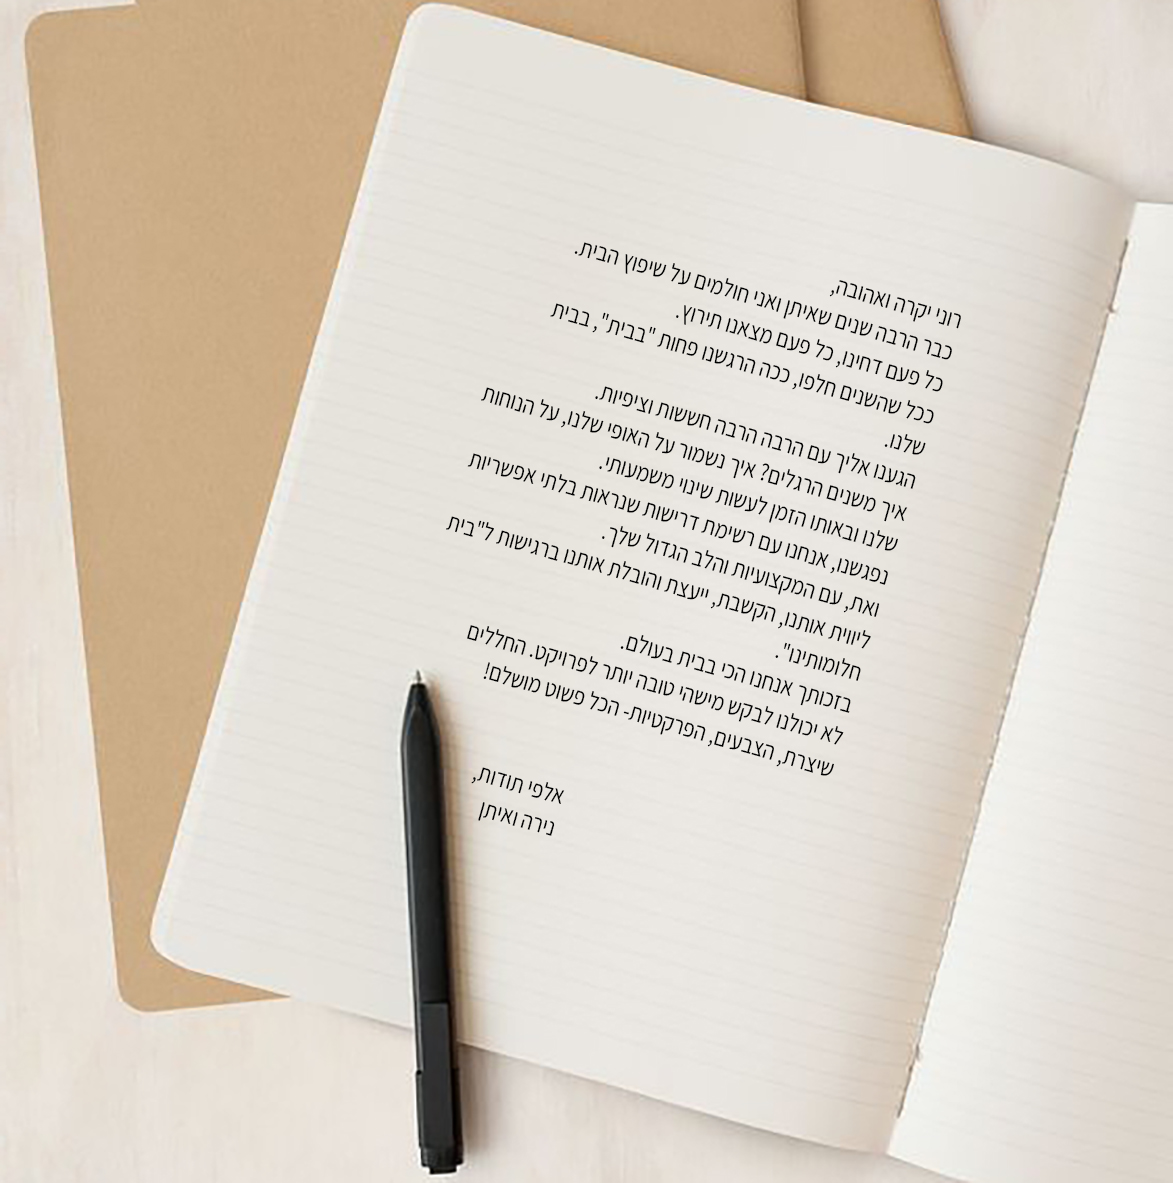 רוני יקרה ואהובה,
כבר הרבה שנים שאיתן ואני חולמים על שיפוץ הבית.
כל פעם דחינו, כל פעם מצאנו תירוץ.
ככל שהשנים חלפו, ככה הרגשנו פחות "בבית", בבית
שלנו.
הגענו אליך עם הרבה הרבה חששות וציפיות.
איך משנים הרגלים? איך נשמור על האופי שלנו, על הנוחות
שלנו ובאותו הזמן לעשות שינוי משמעותי.
נפגשנו, אנחנו עם רשימת דרישות שנראות בלתי אפשריות
ואת, עם המקצועיות והלב הגדול שלך.
ליווית אותנו, הקשבת, ייעצת והובלת אותנו ברגישות ל"בית
חלומותינו".
בזכותך אנחנו הכי בבית בעולם.
לא יכולנו לבקש מישהי טובה יותר לפרויקט. החללים
שיצרת, הצבעים, הפרקטיות- הכל פשוט מושלם!
אלפי תודות,
נירה ואיתן